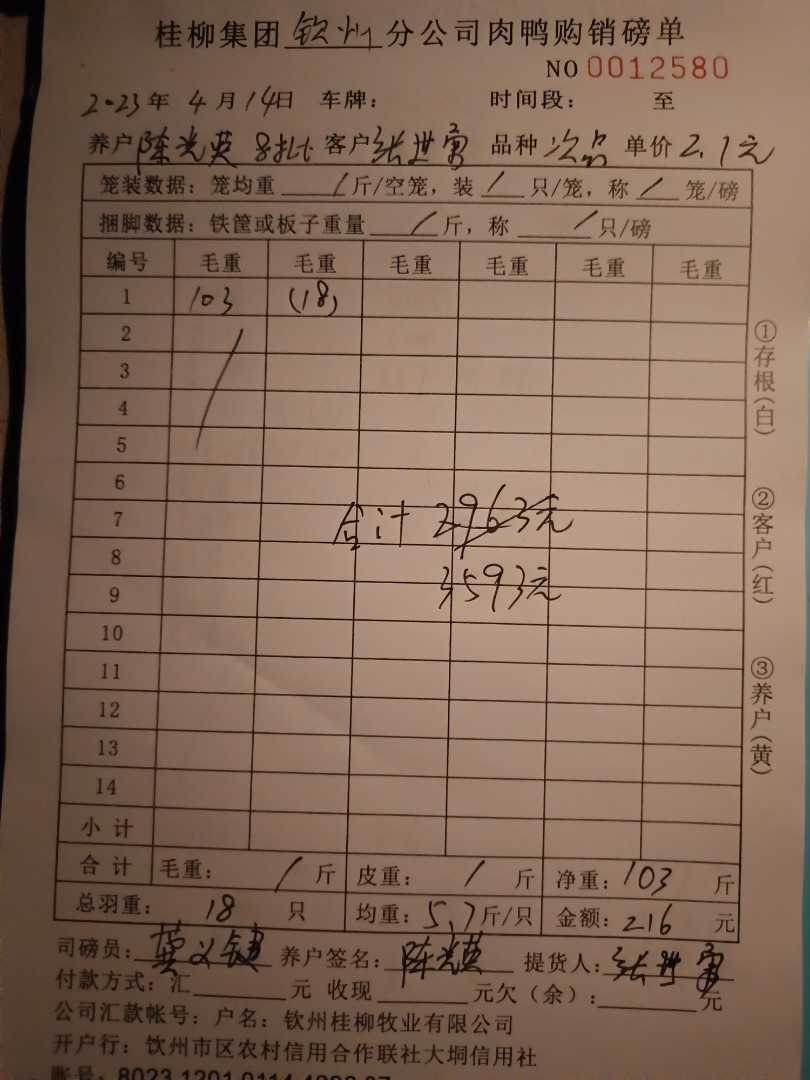 桂柳集团钦州分公司肉鸭购销磅单
NO 0012580
2023年 4月 14日 车牌： 时间段： 至
养户 陈光英 8批 客户 张世富 品种 次品 单价 2.1元
笼装数据：笼均重 / 斤/空笼，装 / 只/笼，称 / 笼/磅
捆脚数据：铁筐或板子重量 / 斤，称 / 只/磅
编号 毛重 毛重 毛重 毛重 毛重 毛重
1 103 (18)
2
3
4
5
6
7
8
9
10
11
12
13
14
合计 2963元
3593元
小计
合计 毛重： / 斤 皮重： / 斤 净重：103 斤
总羽重： 18 只 均重：5.7斤/只 金额：216 元
司磅员： 养户签名：陈光英 提货人：张世富
付款方式：汇 元 收现 元欠（余）： 元
公司汇款帐号：户名：钦州桂柳牧业有限公司
开户行：钦州市区农村信用合作联社大垌信用社
①存根（白）
②客户（红）
③养户（黄）